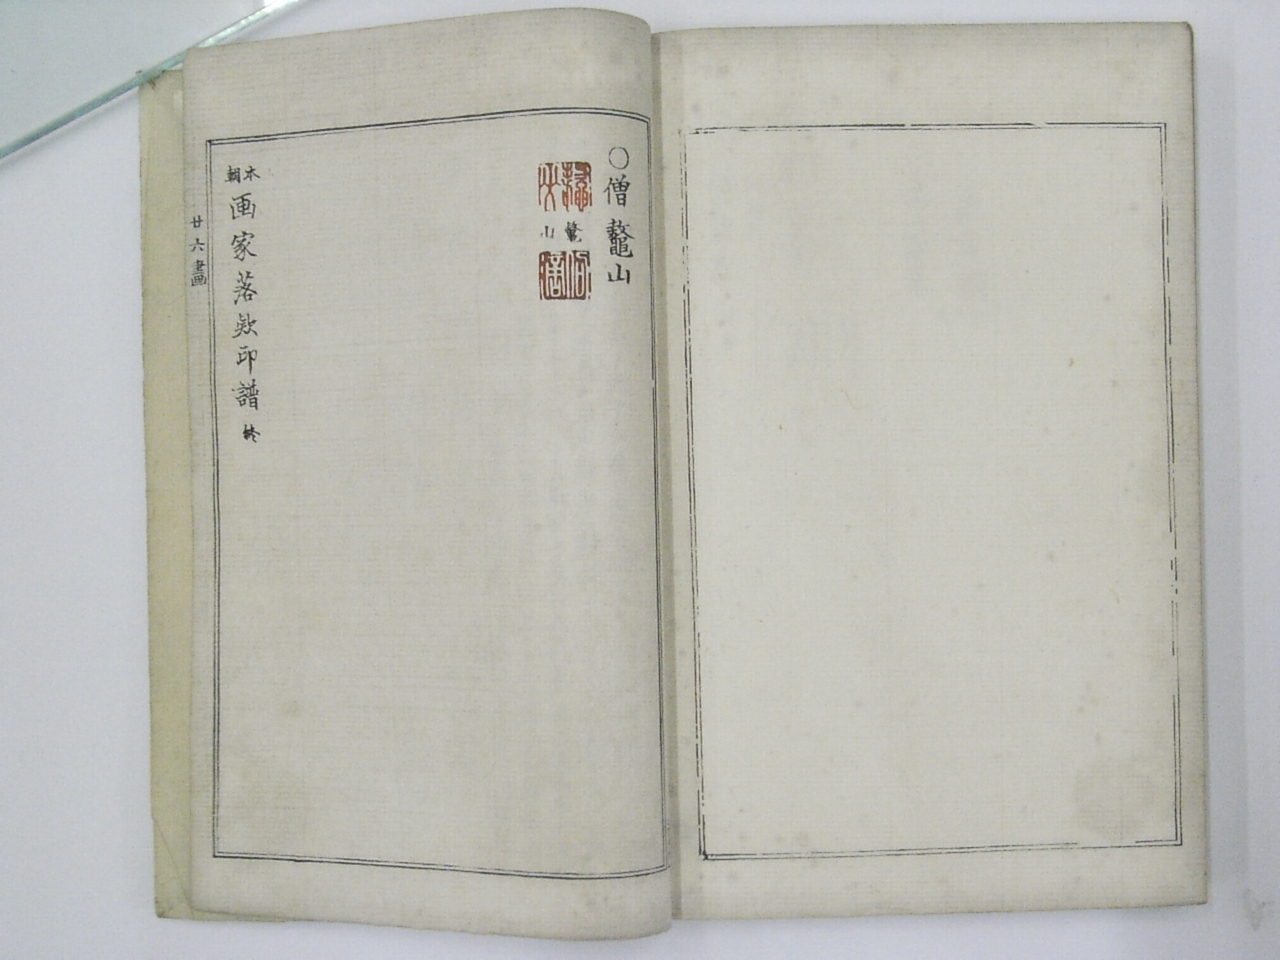 ○僧鼇山
鼇
山
本朝画家落款印譜終
廿六畫